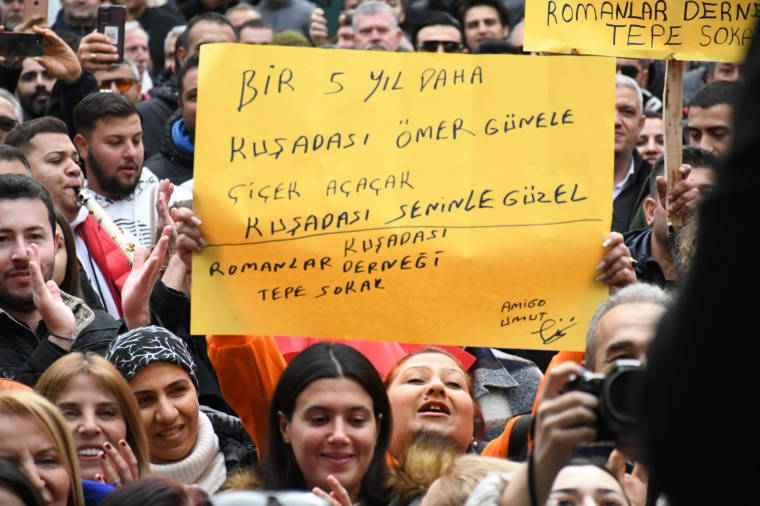 ROMANLAR DERNE
TEPE SOKA
BİR 5 YIL DAHA
KUŞADASI ÖMER GÜNELE
ÇİÇEK AÇAÇAK
KUŞADASI SENINLE GÜZEL
KUŞADASI
ROMANLAR DERNEĞİ
TEPE SOKAK
AMİGO
UMUT